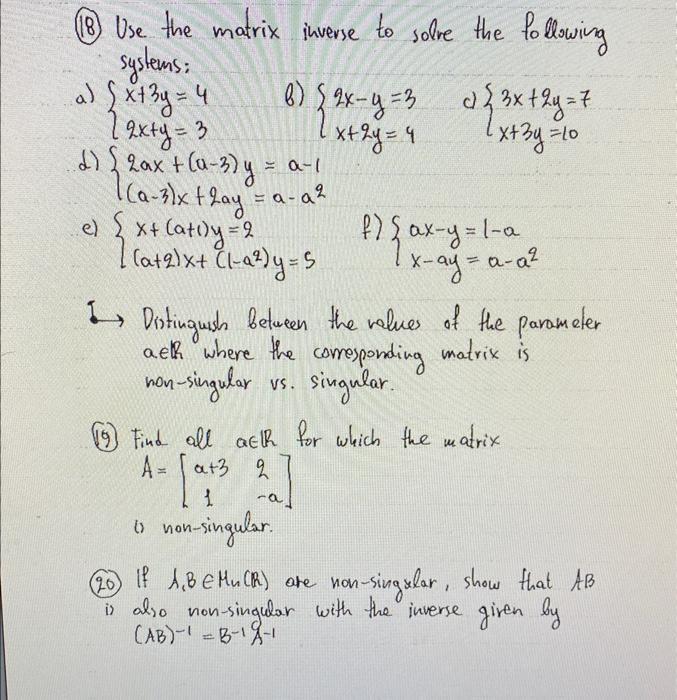 (18) Use the matrix inverse to solve the following
systems:
a) { x+3y = 4 b) { 2x-y = 3 c) { 3x+2y = 7
2x+y = 3 x+2y = 4 x+3y = 10
d) { 2ax + (a-3)y = a-1
(a-3)x + 2ay = a-a²
e) { x + (a+1)y = 2 f) { ax-y = 1-a
(a+2)x + (1-a²)y = 5 x-ay = a-a²
↳ Distinguish between the values of the parameter
a∈ℝ where the corresponding matrix is
non-singular vs. singular.
(19) Find all a∈ℝ for which the matrix
A = [ a+3 2
1 -a ]
is non-singular.
(20) If A,B ∈ Mn(ℝ) are non-singular, show that AB
is also non-singular with the inverse given by
(AB)⁻¹ = B⁻¹A⁻¹